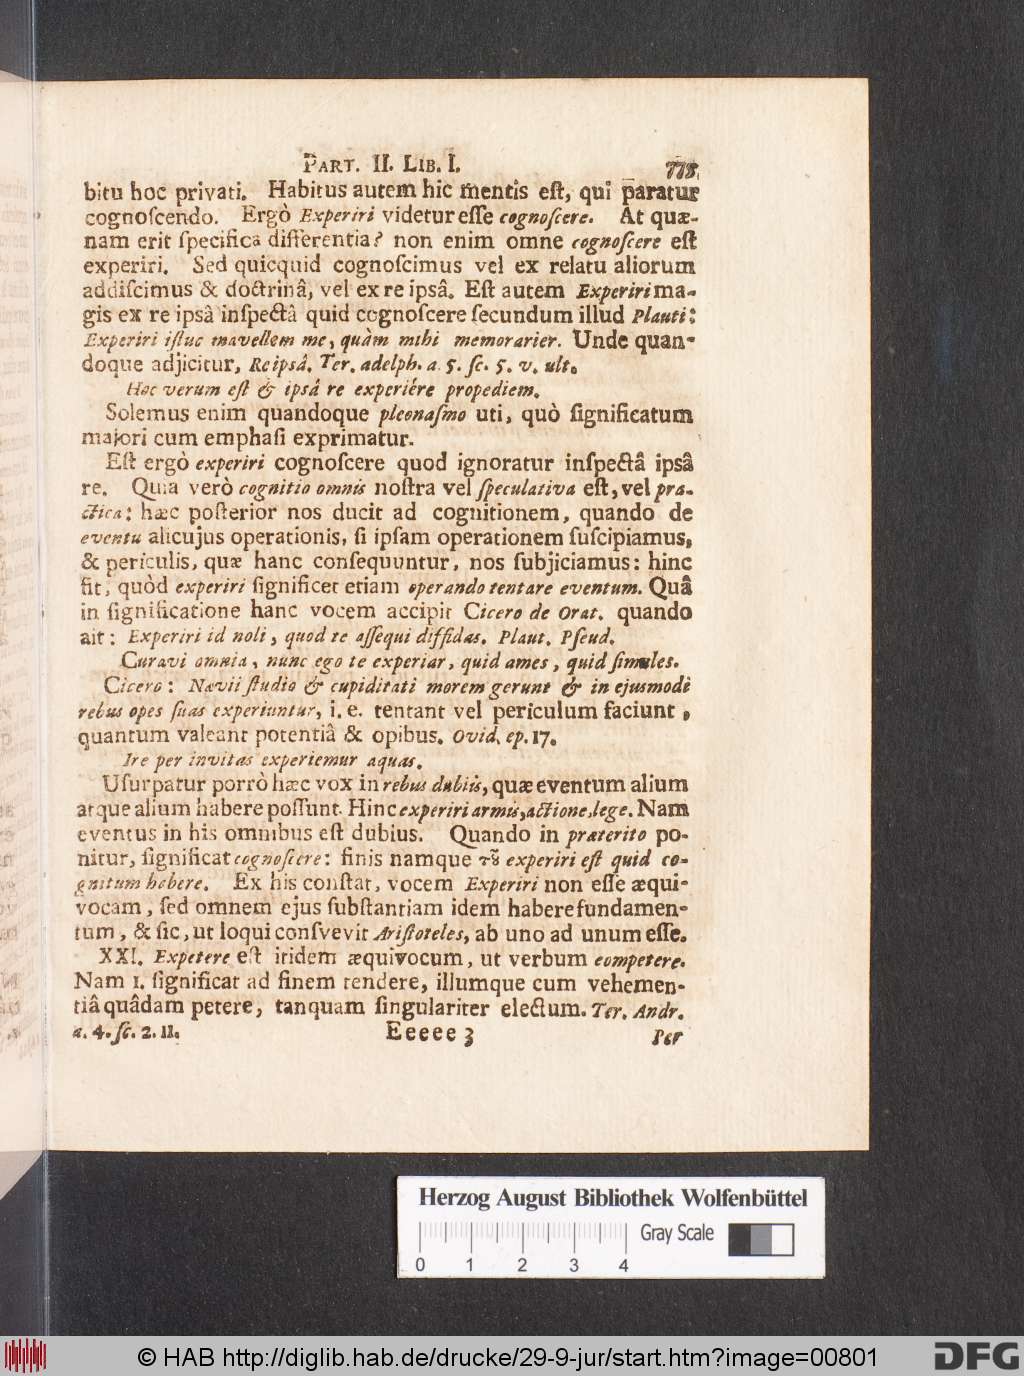 PART. II. LIB. I. 773.
bitu hoc privati. Habitus autem hic mentis eſt, qui paratur
cognoſcendo. Ergò Experiri videtur eſſe cognoſcere. At quæ-
nam erit ſpecifica differentia? non enim omne cognoſcere eſt
experiri. Sed quicquid cognoſcimus vel ex relatu aliorum
addiſcimus & doctrinâ, vel ex re ipsâ. Eſt autem Experiri ma-
gis ex re ipsâ inſpectâ quid cognoſcere ſecundum illud Plauti:
Experiri iſtuc mavellem me, quàm mihi memorarier. Unde quan-
doque adjicitur, Re ipsâ. Ter. adelph. a. 5. ſc. 5. v. ult.
Hoc verum eſt & ipsâ re experiêre propediem.
Solemus enim quandoque pleonaſmo uti, quò ſignificatum
majori cum emphaſi exprimatur.
Eſt ergò experiri cognoſcere quod ignoratur inſpectâ ipsâ
re. Quia verò cognitio omnis noſtra vel ſpeculativa eſt, vel pra-
ctica: hæc poſterior nos ducit ad cognitionem, quando de
eventu alicujus operationis, ſi ipſam operationem ſuſcipiamus,
& periculis, quæ hanc conſequuntur, nos ſubjiciamus: hinc
fit, quòd experiri ſignificet etiam operando tentare eventum. Quâ
in ſignificatione hanc vocem accipit Cicero de Orat. quando
ait: Experiri id noli, quod te aſſequi diffidas. Plaut. Pſeud.
Curavi omnia, nunc ego te experiar, quid ames, quid ſimules.
Cicero: Nævii ſtudio & cupiditati morem gerunt & in ejusmodi
rebus opes ſuas experiuntur, i. e. tentant vel periculum faciunt,
quantum valeant potentiâ & opibus. Ovid. ep. 17.
Ire per invitas experiemur aquas.
Uſurpatur porrò hæc vox in rebus dubiis, quæ eventum alium
atque alium habere poſſunt. Hinc experiri armis, actione, lege. Nam
eventus in his omnibus eſt dubius. Quando in præterito po-
nitur, ſignificat cognoſcere: finis namque τȣ͂ experiri eſt quid co-
gnitum habere. Ex his conſtat, vocem Experiri non eſſe æqui-
vocam, ſed omnem ejus ſubſtantiam idem habere fundamen-
tum, & ſic, ut loqui conſvevit Ariſtoteles, ab uno ad unum eſſe.
XXI. Expetere eſt itidem æquivocum, ut verbum competere.
Nam 1. ſignificat ad finem tendere, illumque cum vehemen-
tiâ quâdam petere, tanquam ſingulariter electum. Ter. Andr.
a. 4. ſc. 2. 11. Eeeee 3 Per
Herzog August Bibliothek Wolfenbüttel
Gray Scale
0 1 2 3 4
© HAB http://diglib.hab.de/drucke/29-9-jur/start.htm?image=00801
DFG